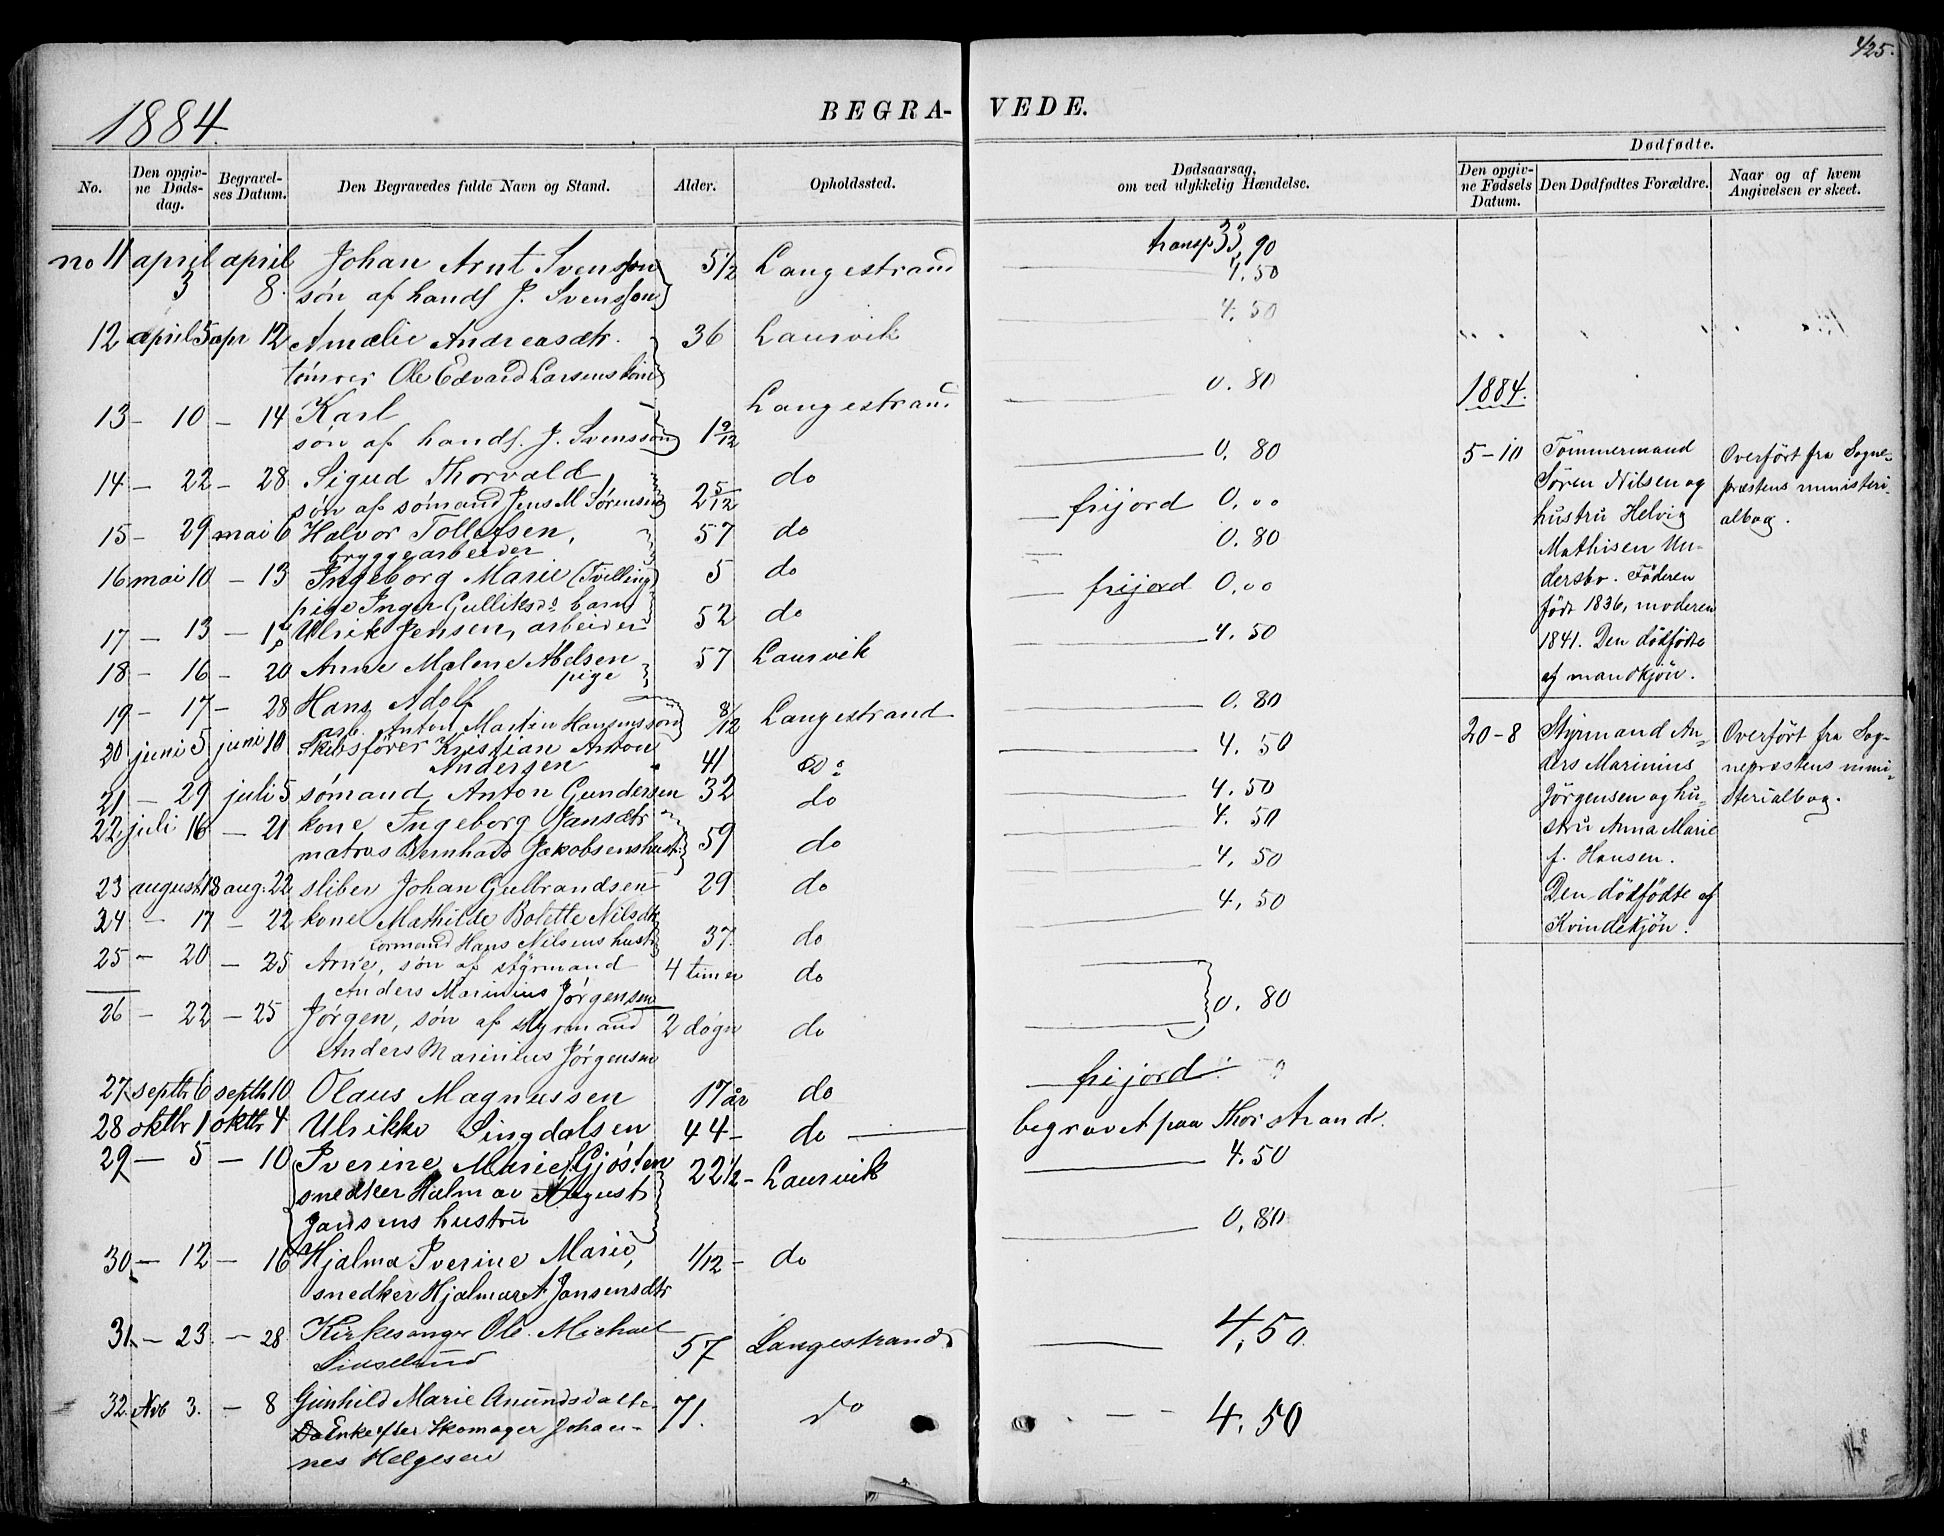 425.
1884.
BEGRA-
VEDE.
No.
Den opgiv-
ne Døds-
dag.
Begravel-
ses Datum.
Den Begravedes fulde Navn og Stand.
Alder.
Opholdssted.
Dødsaarsag,
om ved ulykkelig Hændelse.
Dødfødte.
Den opgiv-
ne Fødsels
Datum.
Den Dødfødtes Forældre.
Naar og af hvem
Angivelsen er skeet.
no 11 april 3 april 8. Johan Arnt Svensson 5 1/2 Langestrand
søn af handl J. Svensson
12 april 5 apr 12 Amalie Andreasdtr. 36 Laurvik
tømrer Ole Edvard Larsens
13 - 10 - 14 Karl 1 9/12 Langestrand
søn af handl. J. Svensson
14 - 22 - 28 Sigud Thorvald 2 5/12 do
søn af sømand Jens M Sørensen
15 - 29 mai 6 Halvor Tollefsen, 57 do
bryggearbeider
16 mai 10 - 13 Ingeborg Marie (Tvilling) 5 do
pige Inger Gulliksd: barn
17 - 13 - Ulrik Jensen, arbeider 52 do
18 - 16 - 20 Anne Malene Abelsen 57 Laurvik
pige
19 - 17 - 28 Hans Adolf 8/12 Langestrand
arb. Anton Martin Hansens søn
20 juni 5 juni 10 Skibsfører Kristian Anton
Andersen 41 Do
21 - 29 juli 5 sømand Anton Gundersen 32 do
22 juli 16 - 21 kone Ingeborg Jansdtr 59 do
matros Bernhard Jakobsens hust.
23 august 18 aug. 22 sliber Johan Gulbrandsen 29 do
24 - 17 - 22 kone Mathilde Bolette Nilsdtr 37. do
formand Hans Nilsens hustr
25 - 20 - 25 Arne, søn af styrmand 4 timer do
Anders Marinius Jørgensen
26 - 22 - 25 Jørgen, søn af styrmand 2 døgn do
Anders Marinius Jørgensen
27 septbr 6 septbr 10 Olaus Magnussen 17 år do
28 oktbr 1 oktbr 4 Ulrikke Singdalsen 44 - do
29 - 5 - 10 Iverine Marie f. Gjøsten 22 1/2 - Laurvik
snedker Halmar August
Jansens hustru
30 - 12 - 16 Hjalma Iverine Marie, 1/12 - do
snedker Hjalmar A Jansens dtr
31 - 23 - 28 Kirkesanger Ole Michael 57 Langestrand
32. Nvb 3. - 8 Gunhild Marie Anundsdatt. 71. do
Enke efter Skomager Johan-
nes Helgesen
transp 33,90
4.50
4.50
0.80
0.80
frijord 0,00
0.80
frijord 0,00
4.50
0.80
4.50
4.50
4.50
4.50
4,50
0.80
frijord
begravet paa Thorstrand.
4.50
0,80
4,50
4.50
1884.
5-10
Tömmermand
Søren Nilsen og
hustru Helvig
Mathisen Un-
dersbo. Föderen
født 1836, moderen
1841. Den dödfødte
af mandkjön.
Overfört fra Sogne-
præstens ministeri-
albog.
20-8
Styrmand An-
ders Marinius
Jörgensen og hu-
stru Anna Marie
f. Hansen.
Den dödfödte af
Kvindekjön.
Overfört fra Sog-
nepræstens mini-
sterialbog.